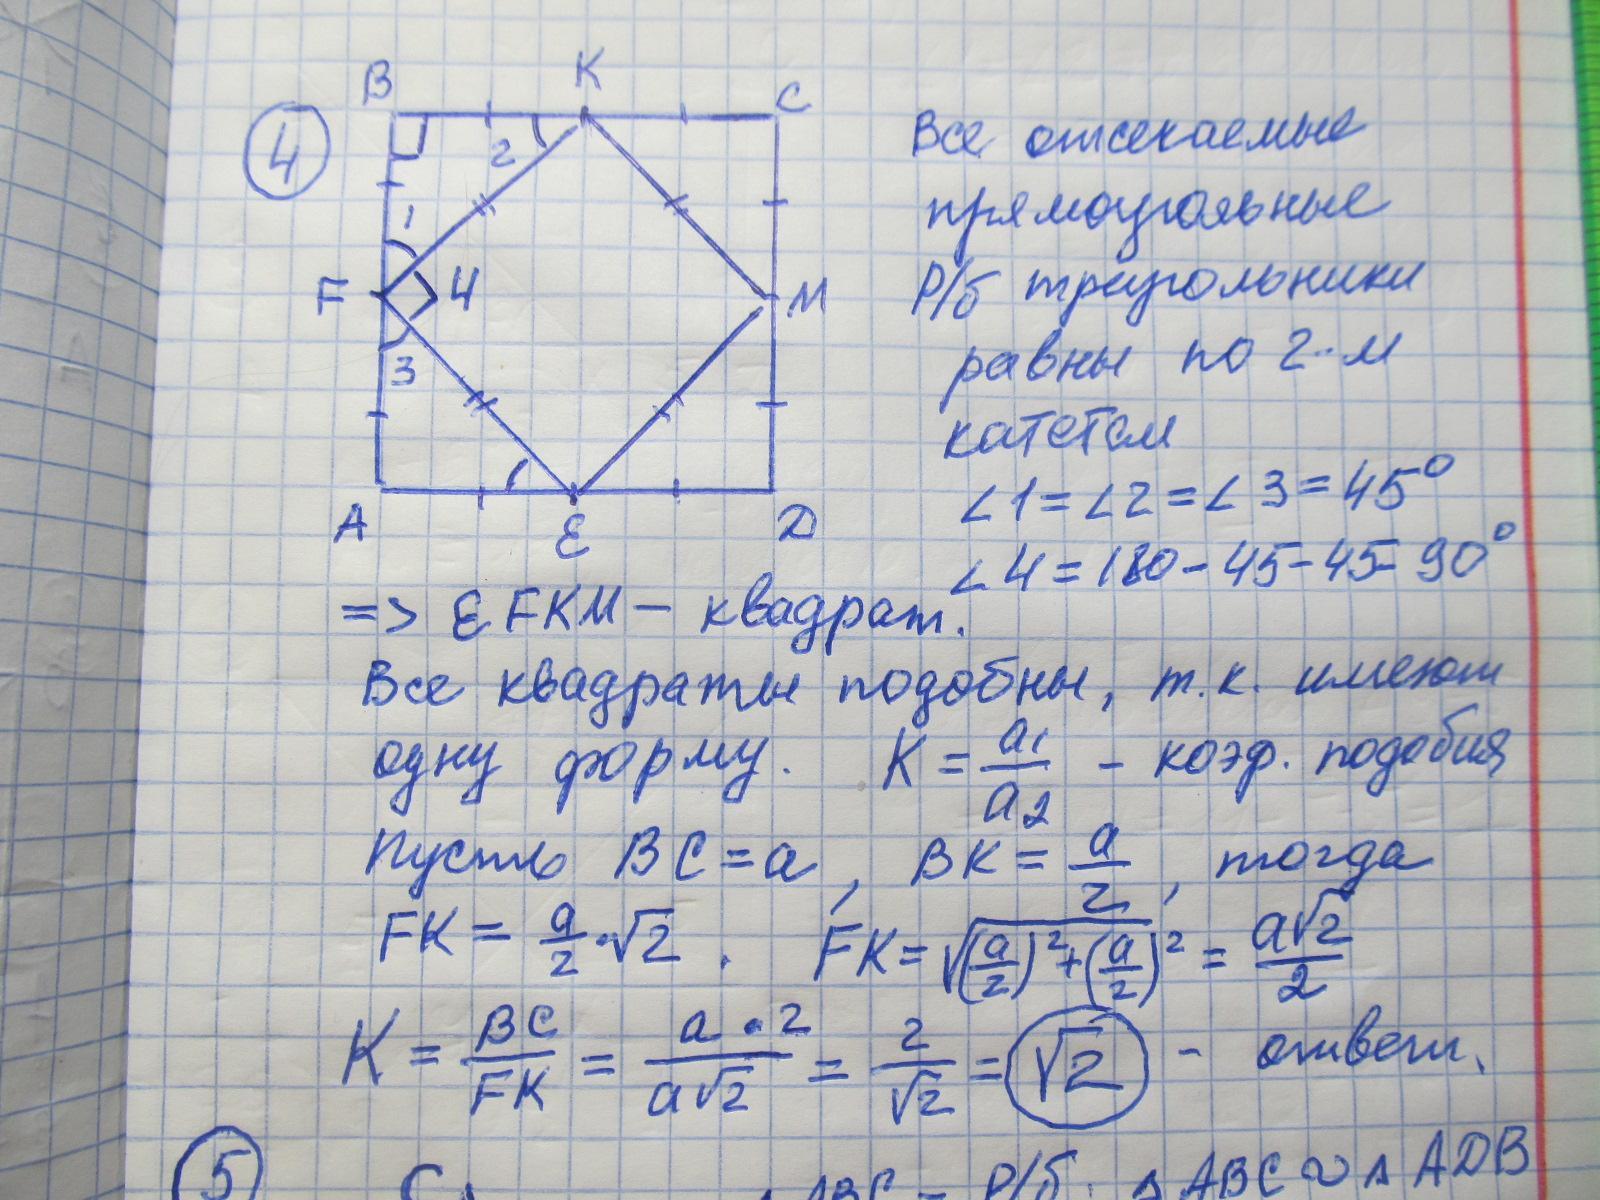 4
B K C
2
1
F 4 M
3
A E D
Все отсекаемые
прямоугольные
Р/б треугольники
равны по 2-м
катетам
∠1 = ∠2 = ∠3 = 45°
∠4 = 180 - 45 - 45 = 90°
=> EFKM — квадрат.
Все квадраты подобны, т.к. имеют
одну форму. K = a₁/a₂ - коэф. подобия
Пусть BC = a, BK = a/2, тогда
FK = a/2 · √2. FK = √((a/2)² + (a/2)²) = a√2/2
K = BC/FK = a·2/a√2 = 2/√2 = √2 - ответ.
5 ABC - Р/б. ΔABC ∾ ΔADB